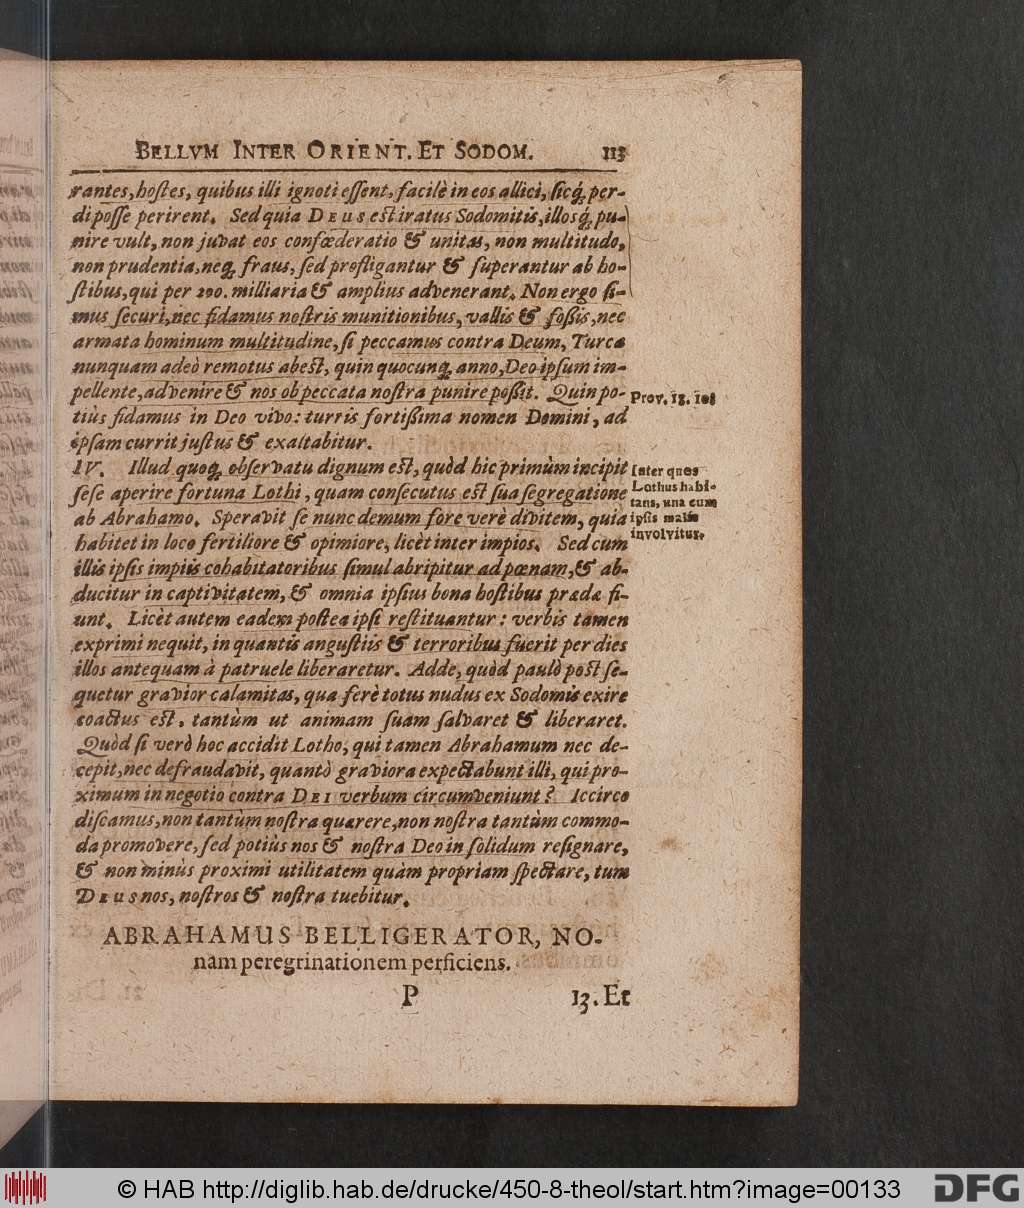 BELLVM INTER ORIENT. ET SODOM. 113
rantes, hostes, quibus illi ignoti essent, facilè in eos allici, sicq́; per-
di posse perirent. Sed quia DEUS est iratus Sodomitis, illosq́; pu-
nire vult, non juvat eos confœderatio & unitas, non multitudo,
non prudentia, neq; fraus, sed profligantur & superantur ab ho-
stibus, qui per 200. milliaria & amplius advenerant. Non ergo si-
mus securi, nec fidamus nostris munitionibus, vallis & foßis, nec
armata hominum multitudine, si peccamus contra Deum, Turca
nunquam adeò remotus abest, quin quocunq; anno, Deo ipsum im-
pellente, advenire & nos ob peccata nostra punire poßit. Quin po-
tiùs fidamus in Deo vivo: turris fortißima nomen Domini, ad
ipsam currit justus & exaltabitur.
Prov. 18. 10
IV. Illud quoq; observatu dignum est, quòd hic primùm incipit
sese aperire fortuna Lothi, quam consecutus est sua segregatione
ab Abrahamo. Speravit se nunc demum fore verè divitem, quia
habitet in loco fertiliore & opimiore, licèt inter impios. Sed cum
illis ipsis impiis cohabitatoribus simul abripitur ad pœnam, & ab-
ducitur in captivitatem, & omnia ipsius bona hostibus præda fi-
unt. Licèt autem eadem postea ipsi restituantur: verbis tamen
exprimi nequit, in quantis angustiis & terroribus fuerit per dies
illos antequam à patruele liberaretur. Adde, quòd paulò pòst se-
quetur gravior calamitas, qua ferè totus nudus ex Sodomis exire
coactus est, tantùm ut animam suam salvaret & liberaret.
Quòd si verò hoc accidit Lotho, qui tamen Abrahamum nec de-
cepit, nec defraudavit, quantò graviora expectabunt illi, qui pro-
ximum in negotio contra DEI verbum circumveniunt? Iccirco
discamus, non tantùm nostra quærere, non nostra tantùm commo-
da promovere, sed potiùs nos & nostra Deo in solidum resignare,
& non minùs proximi utilitatem quàm propriam spectare, tum
DEUS nos, nostros & nostra tuebitur.
Inter quos
Lothus habi-
tans, una cum
ipsis malis
involvitur.
ABRAHAMUS BELLIGERATOR, NO-
nam peregrinationem perficiens.
P 13. Et
© HAB http://diglib.hab.de/drucke/450-8-theol/start.htm?image=00133
DFG